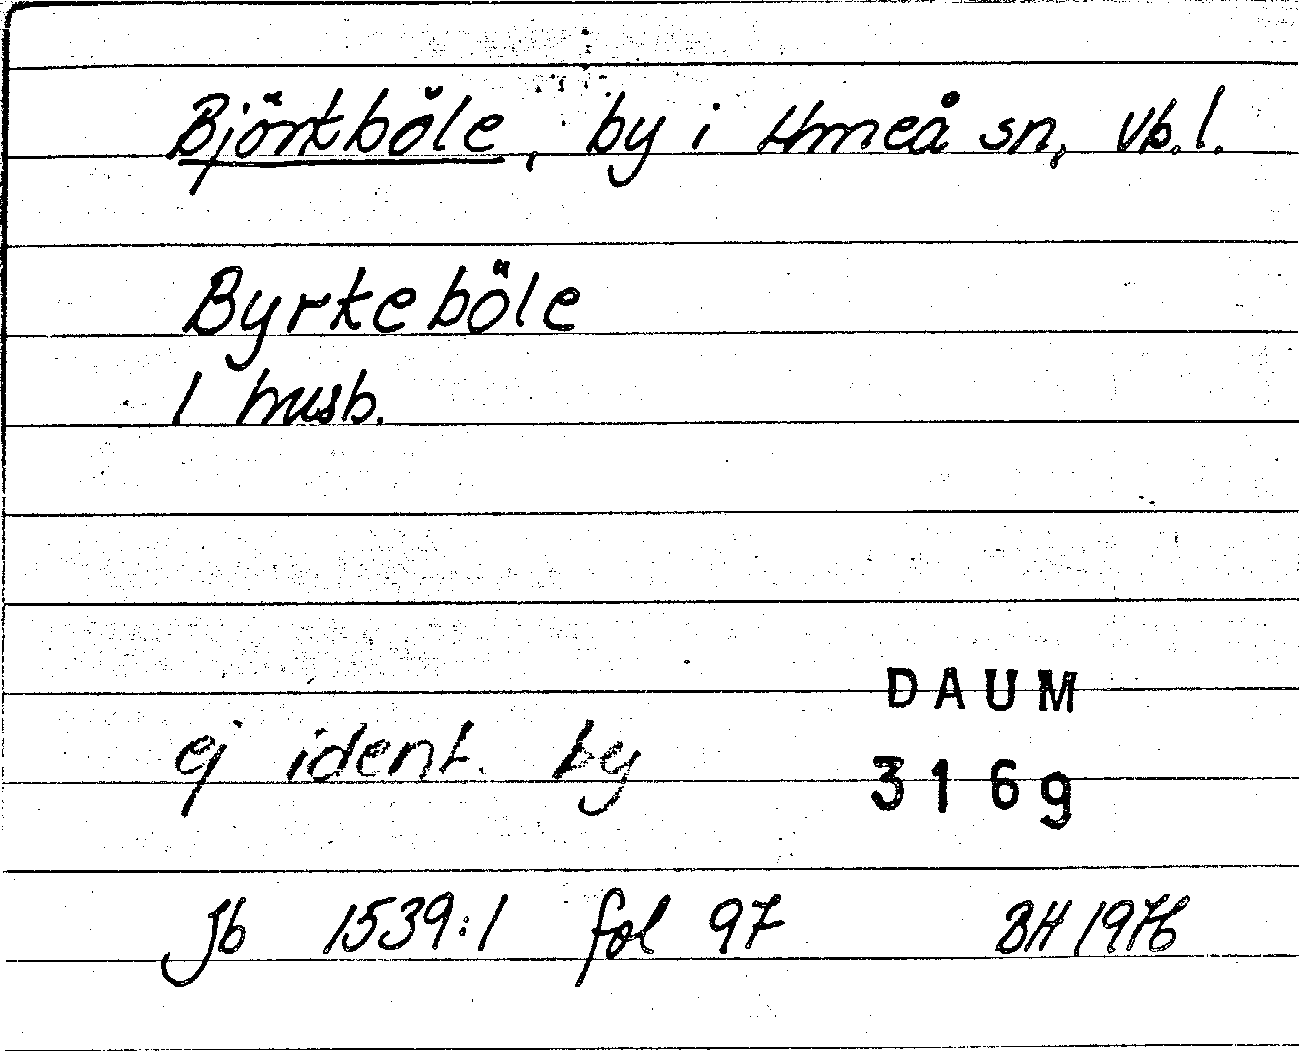 Björkböle, by i Umeå sn, Vb. l.
Byrkeböle
1 husb.
DAUM
ej ident. by
3169
Jb 1539:1 fol 97 BH 1976